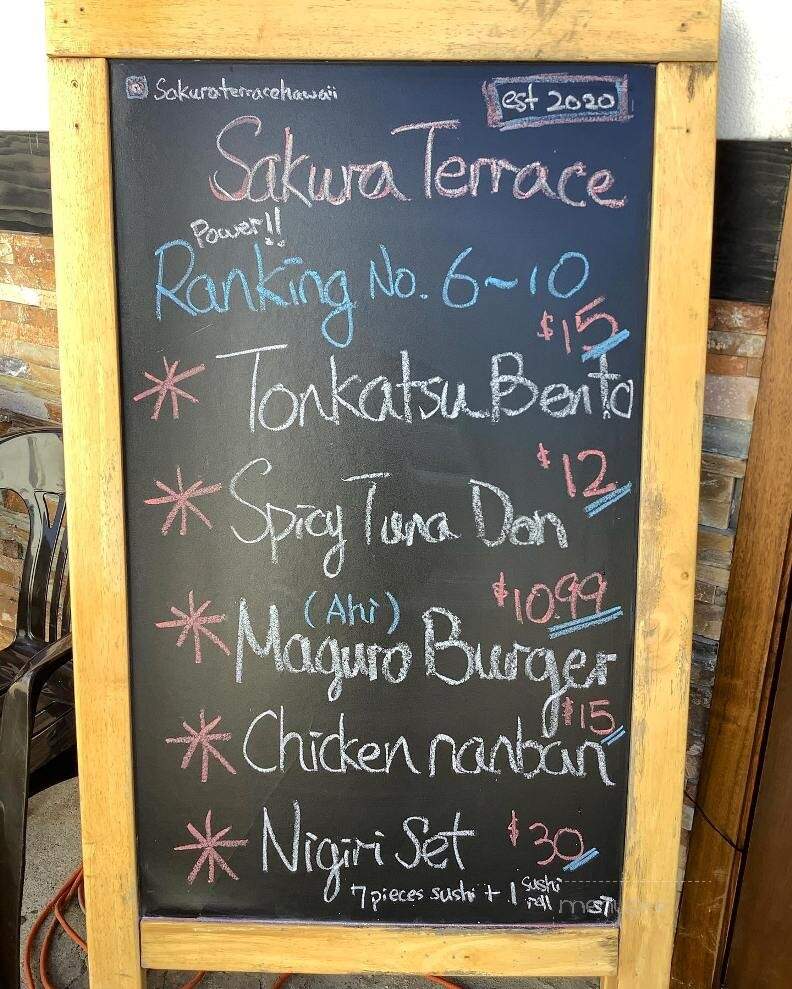 Sakuraterracehawaii
est 2020
Sakura Terrace
Power!!
Ranking No. 6~10
$15
Tonkatsu Bento
$12
Spicy Tuna Don
(Ahi) $10.99
Maguro Burger
$15
Chicken nanban
Nigiri Set $30
7 pieces sushi + 1 sushi roll